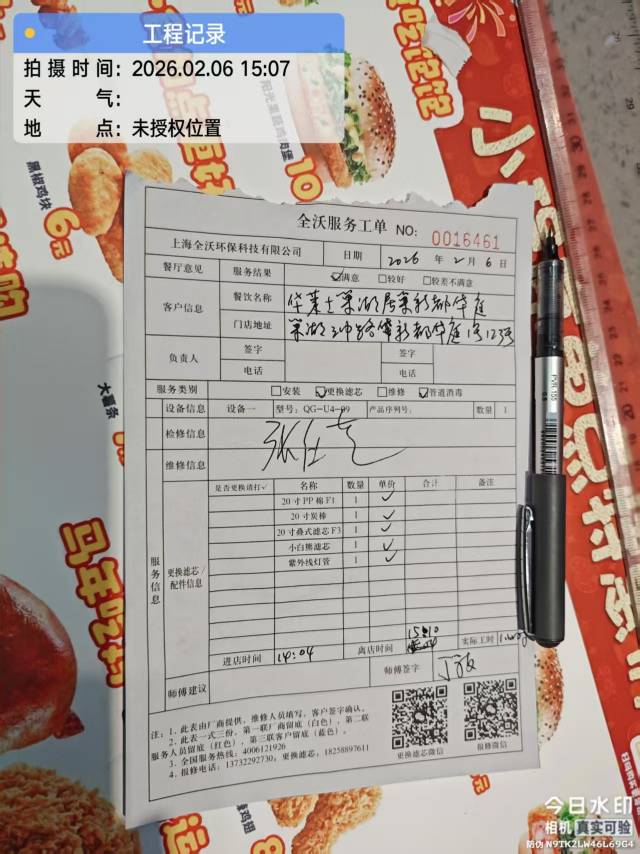 工程记录
拍摄时间：2026.02.06 15:07
天气：
地点：未授权位置
阳光熏鸡鸡肉堡
10
黑椒鸡块
6元
大薯条
全沃服务工单 NO: 0016461
上海全沃环保科技有限公司 日期 2026 年 2 月 6 日
餐厅意见 服务结果 ☑满意 □较好 □较差不满意
客户信息 餐饮名称 华莱士巢湖居莱新都华庭
门店地址
负责人 签字 签字
电话 电话
服务类别 □安装 ☑更换滤芯 □维修 ☑管道消毒
设备信息 设备一 型号：QG-U4-09 产品序列号： 数量 1
检修信息
维修信息
服务信息
更换滤芯/配件信息
是否更换请打√ 名称 数量 单价 合计 备注
20寸PP棉F1 1 ✓
20寸炭棒 1 ✓
20寸叠式滤芯F3 1 ✓
小白熊滤芯 1 ✓
紫外线灯管 1 ✓
进店时间 14:04 离店时间 15:10 实际工时
师傅建议 师傅签字
注：1、此表由厂商提供，维修人员填写，客户签字确认。
2、此表一式三份，第一联厂商留底（白色），第二联
服务人员留底（红色），第三联客户留底（蓝色）。
3、全国服务热线：4006121926
4、报修电话：13732292730；更换滤芯、18258897611
更换滤芯微信
报修微信
今日水印
相机 真实可验
防伪 N9TK2LW46L69G4